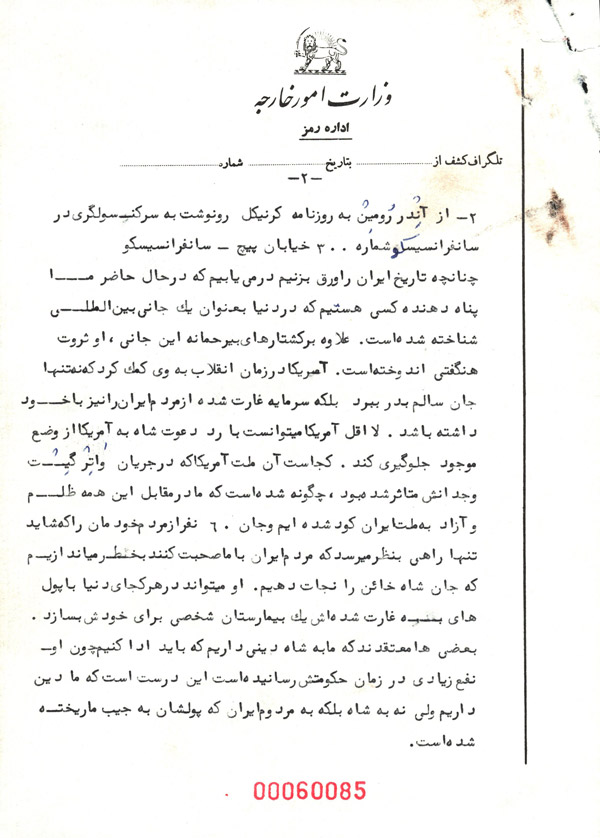 وزارت امور خارجه
اداره رمز
تلگراف کشف از ........ بتاریخ ........ شماره ........
-۲-
۲- از آندر رومین به روزنامه کرنیکل رونوشت به سرکنسولگری در
سانفرانسیسکو شماره ۳۰۰ خیابان پیچ - سانفرانسیسکو
چنانچه تاریخ ایران را ورق بزنیم درمی یابیم که درحال حاضر مـــا
پناه دهنده کسی هستیم که در دنیا بعنوان یک جانی بین المللـــی
شناخته شده است. علاوه برکشتارهای بیرحمانه این جانی ، او ثروت
هنگفتی اندوخته است. آمریکا در زمان انقلاب به وی کمک کرد که نه تنها
جان سالم بدر ببرد بلکه سرمایه غارت شده از مردم ایران را نیز باخـود
داشته باشد . لااقل آمریکا میتوانست با رد دعوت شاه به آمریکا از وضع
موجود جلوگیری کند . کجاست آن ملت آمریکا که در جریان واتر گیـت
وجدانش متاثر شده بود ، چگونه شده است که ما در مقابل این همه ظلـم
و آزاد به ملت ایران کور شده ایم و جان ۶۰ نفر از مردم خودمان را که شاید
تنها راهی بنظر میرسد که مردم ایران با ما صحبت کنند بخطر میاندازیـم
که جان شاه خائن را نجات دهیم. او میتواند در هرکجای دنیا با پول
های غارت شده اش یک بیمارستان شخصی برای خودش بسازد .
بعضی ها معتقدند که ما به شاه دینی داریم که باید ادا کنیم چون اوـ
نفع زیادی در زمان حکومتش رسانیده است این درست است که ما دین
داریم ولی نه به شاه بلکه به مردوم ایران که پولشان به جیب ما ریختـه
شده است.
00060085